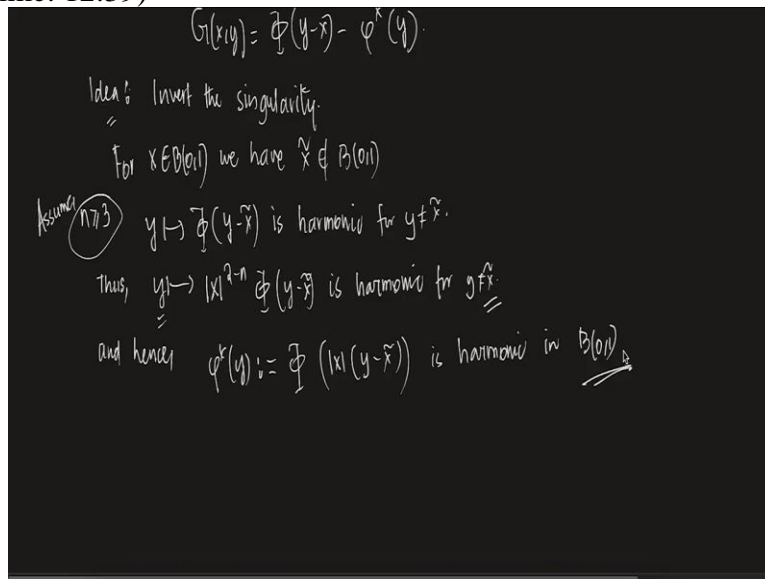 G(x,y) = Φ(y-x) - φˣ(y).
Idea: Invert the singularity.
For x ∈ B(0,1) we have x̃ ∉ B(0,1)
Assume n≥3 y ↦ Φ(y-x̃) is harmonic for y ≠ x̃.
Thus, y ↦ |x|²⁻ⁿ Φ(y-x̃) is harmonic for y ≠ x̃.
and hence, φˣ(y) := Φ(|x|(y-x̃)) is harmonic in B(0,1)